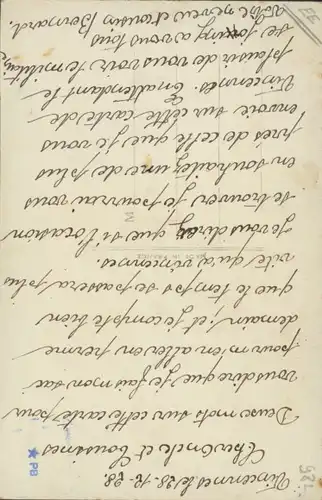 Vincennes le 28-12-28
Cher Oncle et Cousines
Deux mots sur cette carte pour
vous dire que je fais mon sac
pour m'en aller en perme
demain, et je compte bien
que le temps se passera plus
vite qu'a Vincennes.
Je vous dirai que si l'occasion
se trouver je pourrai vous
en souhaitez une de plus
près de celle que je vous
envoie sur cette carte de
Vincennes. En attendant le
plaisir de vous voir le militaire
se joint a vous tous
votre neveu et cousin Bernard.
★ PB